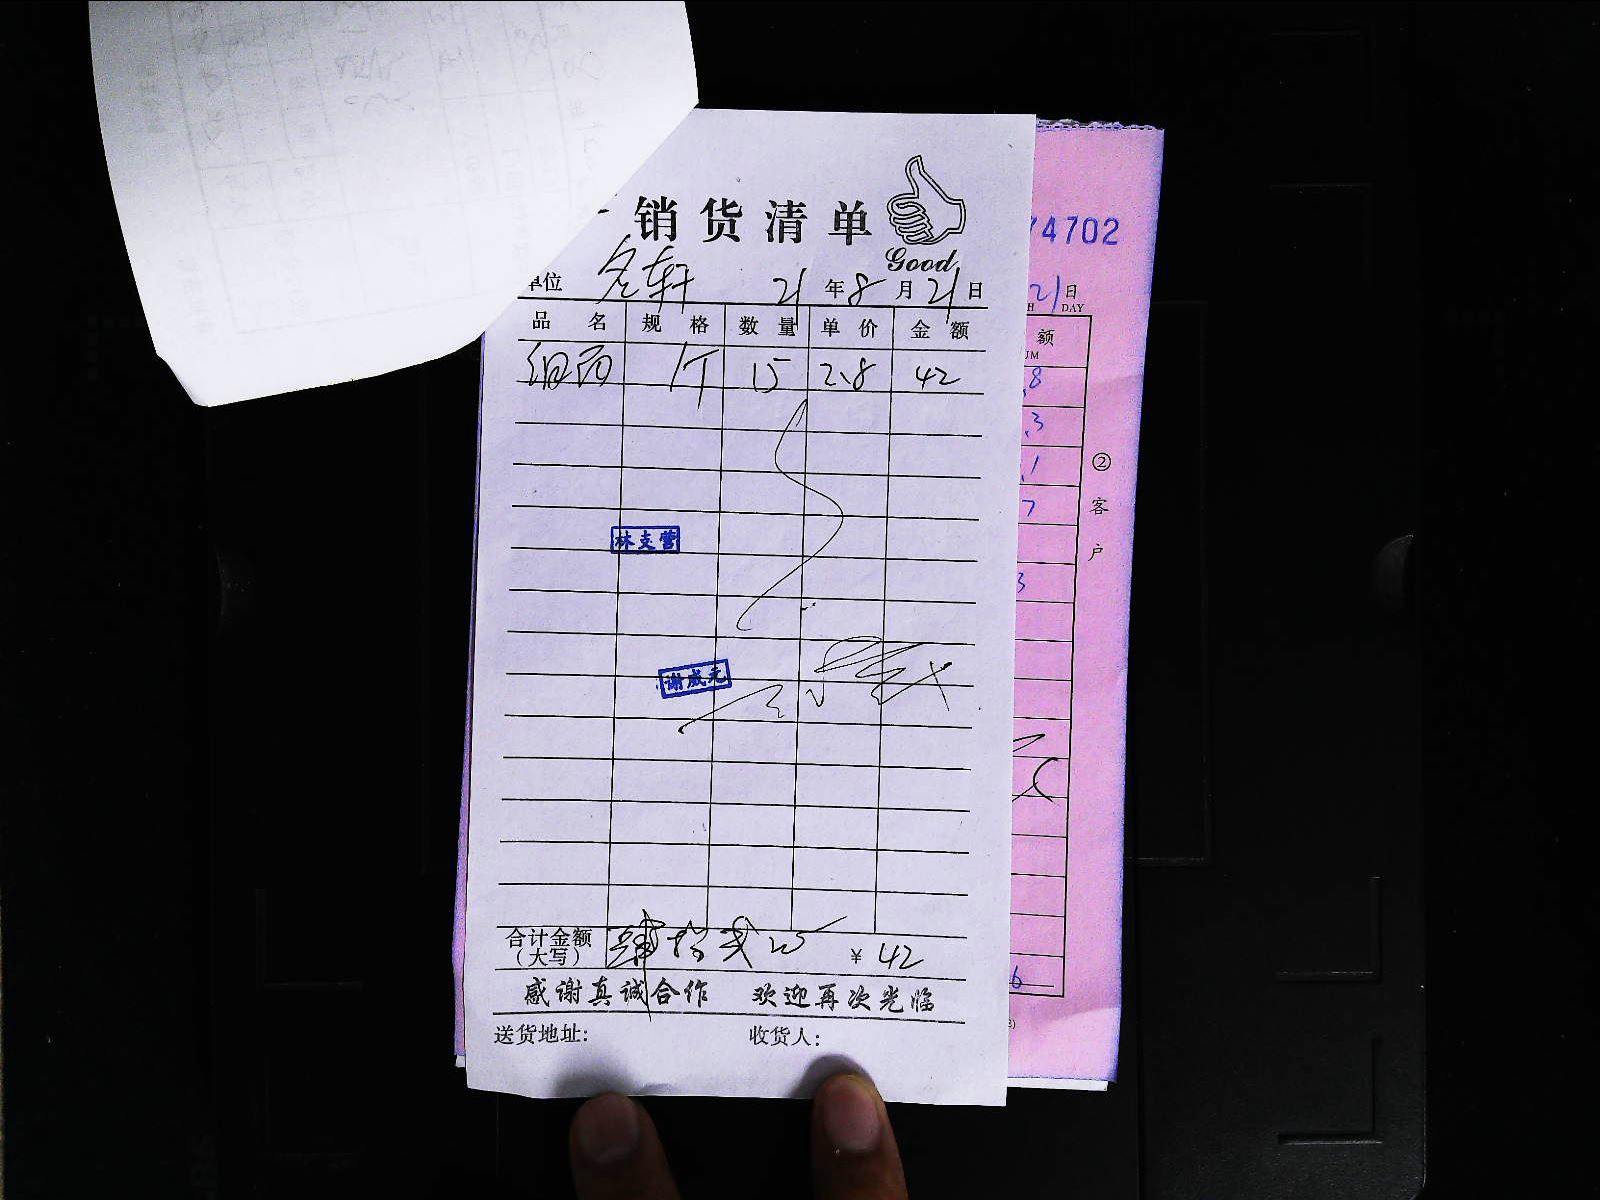 销货清单
Good
单位 名轩 21年8月21日
品名 规格 数量 单价 金额
细面 1斤 15 2.8 42
林支营
谢成元
合计金额（大写） 肆拾贰元 ¥ 42
感谢真诚合作 欢迎再次光临
送货地址: 收货人:
74702
21日
H DAY
额
UM
.8
.3
.1
7
3
6
②客户